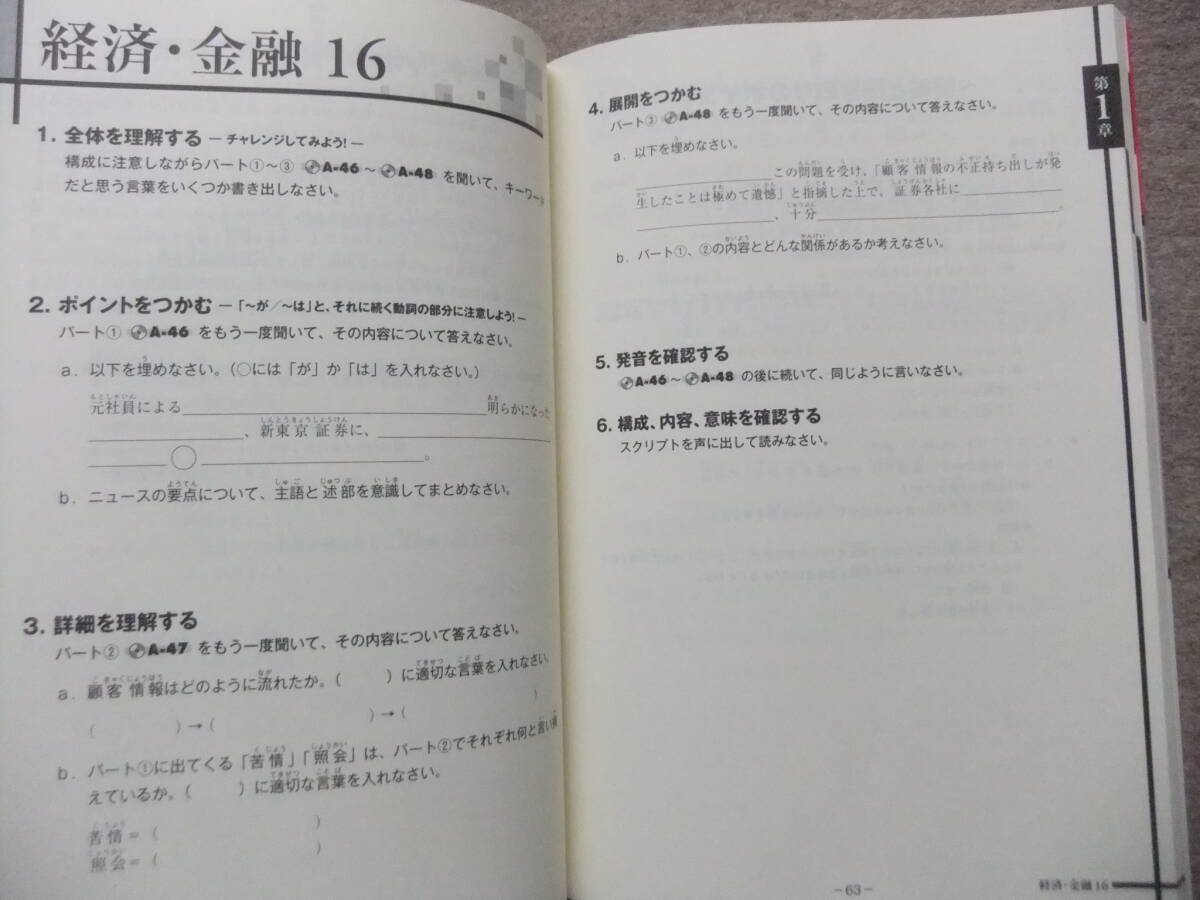 経済・金融 16
1. 全体を理解する ―チャレンジしてみよう!―
構成に注意しながらパート①～③ A-46 ～ A-48 を聞いて、キーワード
だと思う言葉をいくつか書き出しなさい。
2. ポイントをつかむ ―「～が／～は」と、それに続く動詞の部分に注意しよう!―
パート① A-46 をもう一度聞いて、その内容について答えなさい。
a. 以下を埋めなさい。(○には「が」か「は」を入れなさい。)
元社員による 明らかになった
、新東京証券に、
○ 。
b. ニュースの要点について、主語と述部を意識してまとめなさい。
3. 詳細を理解する
パート② A-47 をもう一度聞いて、その内容について答えなさい。
a. 顧客情報はどのように流れたか。( )に適切な言葉を入れなさい。
( )→( )→( )
b. パート①に出てくる「苦情」「照会」は、パート②でそれぞれ何と言い換
えているか。( )に適切な言葉を入れなさい。
苦情＝( )
照会＝( )
第1章
4. 展開をつかむ
パート③ A-48 をもう一度聞いて、その内容について答えなさい。
a. 以下を埋めなさい。
この問題を受け、「顧客情報の不正持ち出しが発
生したことは極めて遺憾」と指摘した上で、証券各社に
、十分 。
b. パート①、②の内容とどんな関係があるか考えなさい。
5. 発音を確認する
A-46 ～ A-48 の後に続いて、同じように言いなさい。
6. 構成、内容、意味を確認する
スクリプトを声に出して読みなさい。
－63－
経済・金融 16